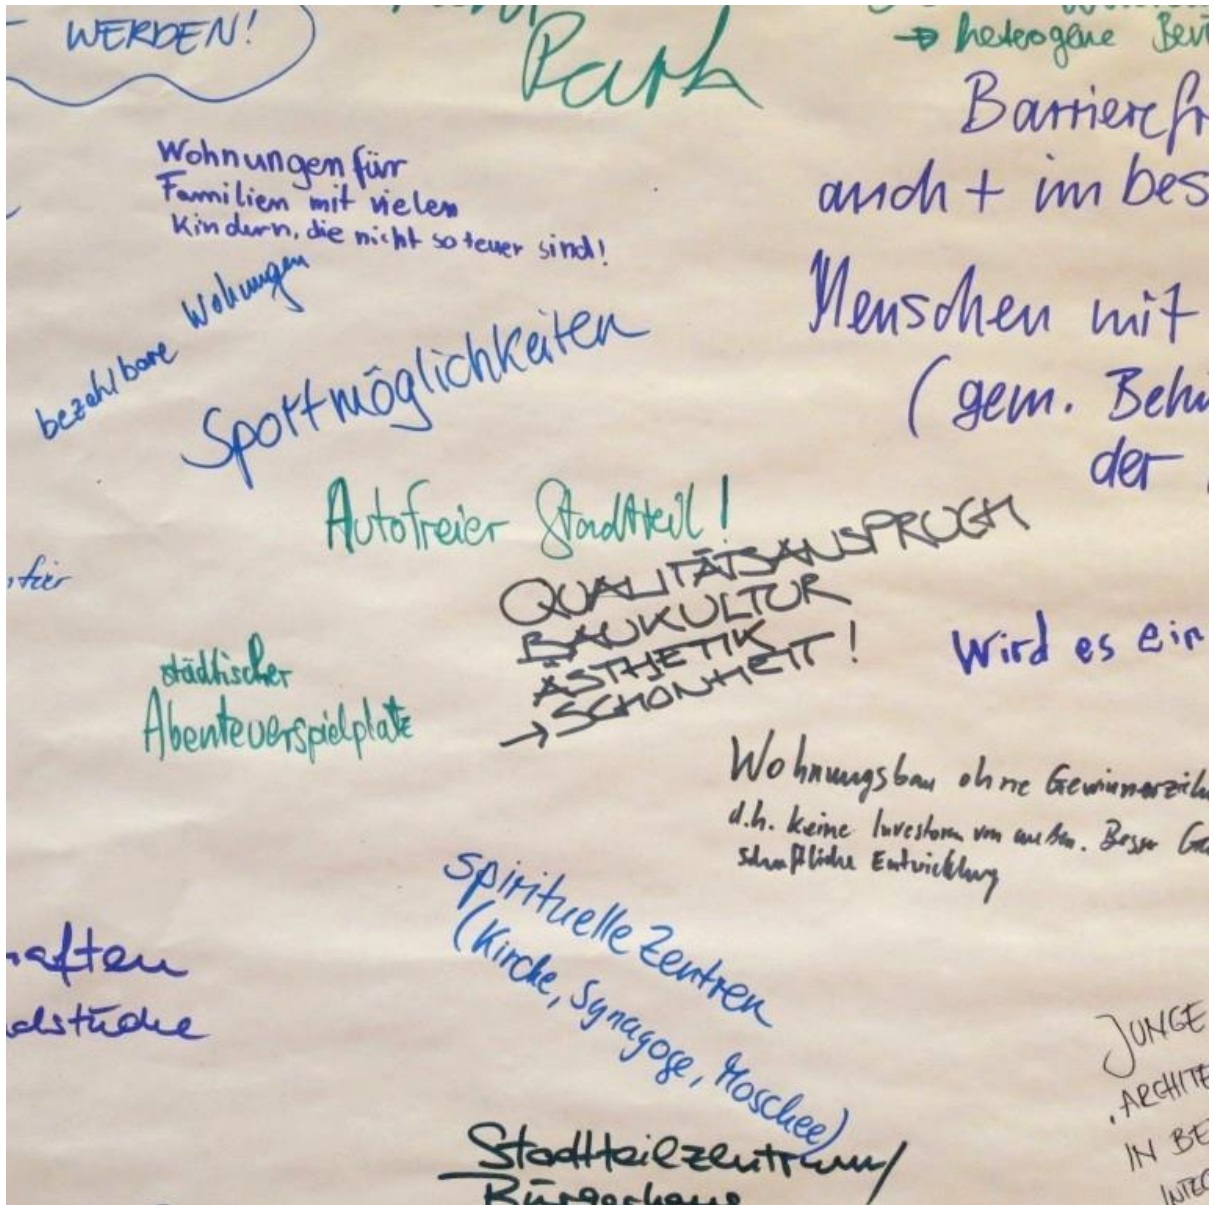 WERDEN!
Park
→ heterogene
Barrierefr
auch + im bes
Wohnungen für
Familien mit vielen
Kindern, die nicht so teuer sind!
Menschen mit
bezahlbare Wohnungen
Sportmöglichkeiten
(gem. Behi
der
Autofreier Stadtteil!
QUALITÄTSANSPRUCH
BAUKULTUR
ÄSTHETIK
→ SCHÖNHEIT!
für
Wird es ein
städtischer
Abenteuerspielplatz
Wohnungsbau ohne Gewinnerzielu
d.h. keine Investoren von außen. Besser Ge
schaftliche Entwicklung
spirituelle Zentren
(Kirche, Synagoge, Moschee)
haften
dstücke
JUNGE
ARCHITE
IN BE
INTE
Stadtteilzentrum/
Bürgerhaus